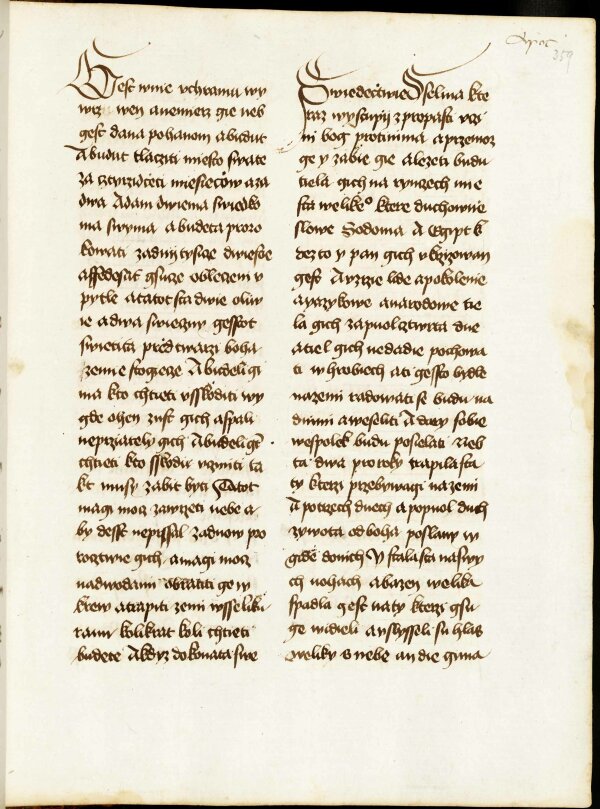 359
Gest wnie vchramu wy
wrz wen anemierz gie neb
gest dana pohanom abudut
Abudut tlacziti miesto swate
za cztyrzidceti miesieczow aza
dwa Adam dwiema swiedko
ma swyma abudeta proro
kowati zadnij tysicze dwiescie
assedesat gsuce obleczeni v
pytle atatot sta dwie oliw
ie adwa swieczny gessto
swietita przed twarzi boha
zemie stogiecze A budeli gi
ma kto chtieti vsskoditi wy
gde ohen zust gich aspali
neprziately gich Abudeli gim
chtieti kto sskodu vczniti ta
kt musy zabit byti Tatot
magi moc zawrzeti nebe a
by desst neprssal zadnow pro
roctwie gich amagi moc
nadwodami obratiti ge w
krew atrapiti zemi wsseliku
ranu kolikrat koli chtieti
budete Akdyz dokonata swe
Swiedectwie Sselma kte
raz wystupij zpropasti vczi
ni bog protinima aprzemoz
ge y zabie gie alezeti budu
tiela gich na rynczech mie
sta welikeo ktere duchownie
slowe Sodoma A Egipt k
dezto y pan gich vkrzizowan
gest Ayzrzie lide apokolenie
ayazykowe anarodowe tie
la gich zapuol cztwrta dne
atiel gich nedadie pochowa
ti whrobiech ati gessto bydle
nazemi radowati se budu na
dnimi aweseliti A dary sobie
wespolek budu poselati Neb
ta dwa proroky trapilasta
ty kterzi przebywagi nazemi
A potrzech dnech apopuol duch
zywota odboha poslany w
gide donich V stalasta naswy
ch nohach abazen welika
spadla gest naty kterzi gsu
ge widieli aslyssieli su hlas
weliky snebe andie gima